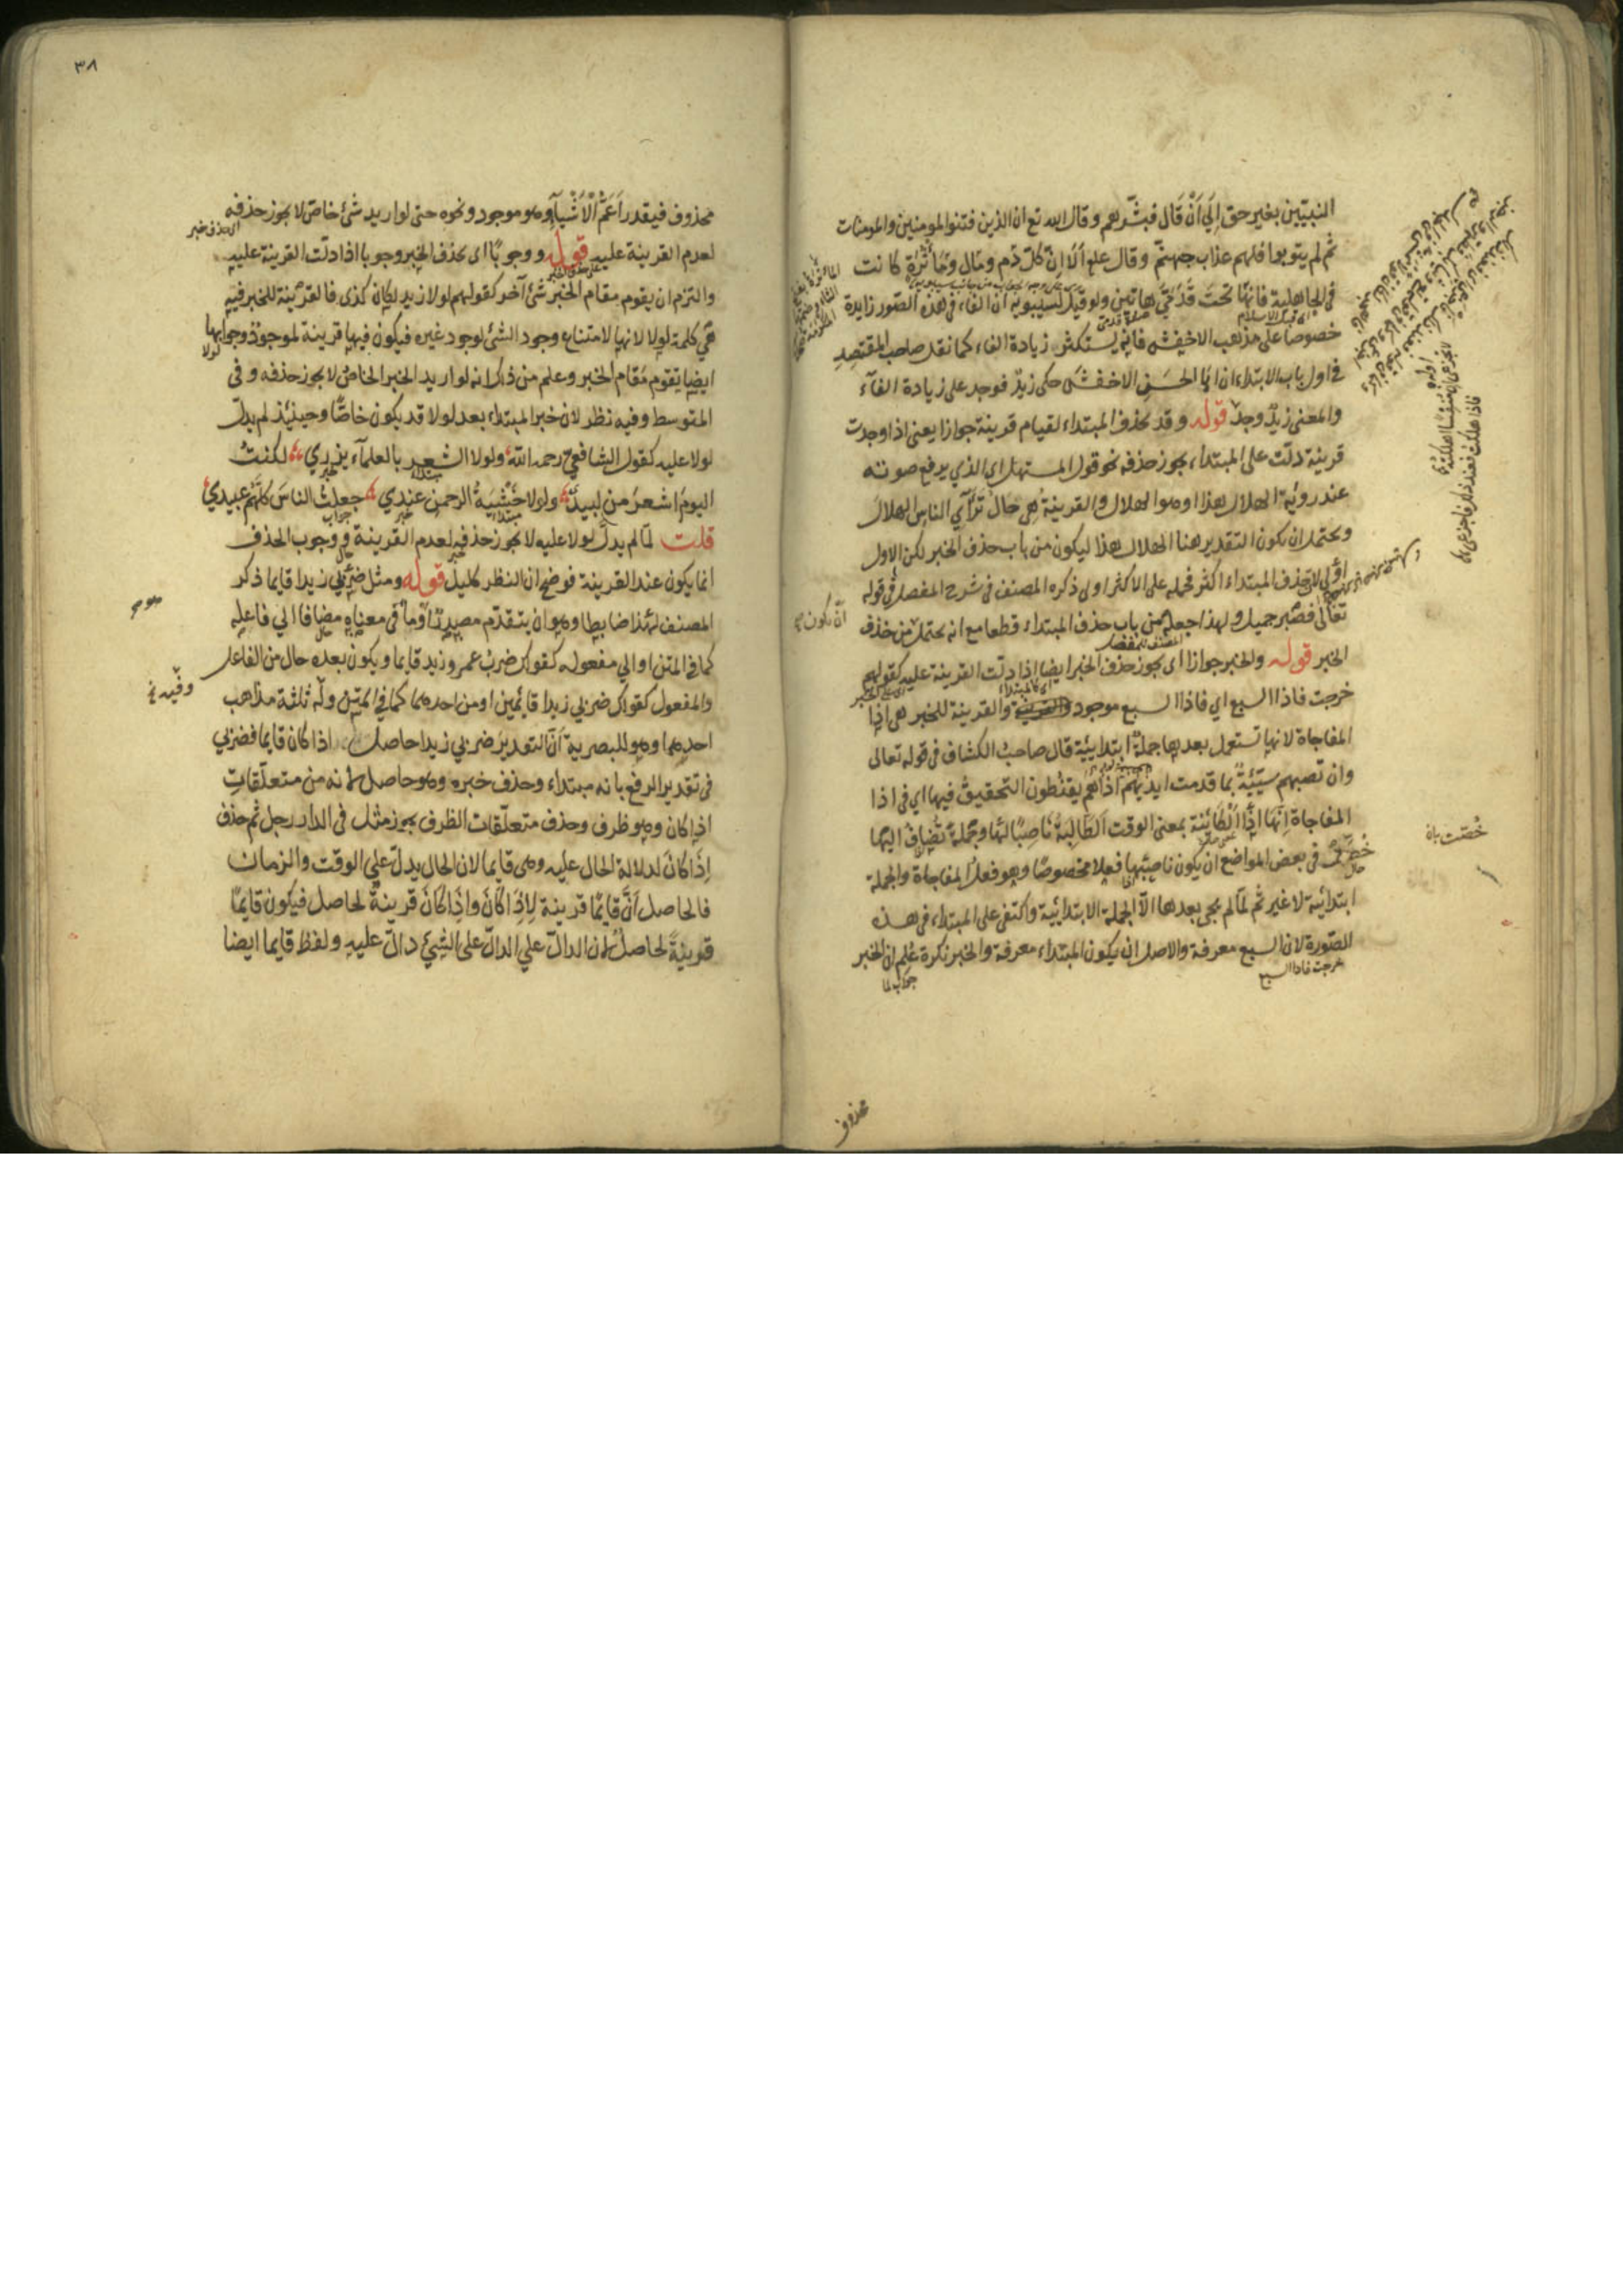 النبيّين بغير حق اِلَي اَنْ قَال فبشّرهم وقال الله تع ان الذين فتنوا المومنين والمومنات
ثم لم يتوبوا فلهم عذاب جهنّم وقال علم اَلَا اِنّ كلّ دَم ومَال ومَاثُرَة كانت
في الجاهلية فانها تحتَ قَدَمَيَّ هاتين ولو قيل لسيبويه ان الفاء في هذه الصّور زايدة
خصوصا على مذهب الاخفش فانه يستكثر زيادة الفاء كما نقل صاحب المقتصد
في اول باب الابتداء ان ابا الحسن الاخفش حكى زيدٌ فوجد على زيادة الفآء
والمعنى زيدٌ وجد قوله وقد يحذف المبتداء لقيام قرينة جوازا يعني اذا وجدت
قرينة دلّت على المبتداء يجوز حذفه نحو قول المستهل اي الذي يرفع صوته
عند روئية الهلال هذا او هو الهلال والقرينة هي حال تَرَآي الناس الهلال
ويحتمل ان يكون التقدير هنا الهلال هذا ليكون من باب حذف الخبر لكن الاول
اَوْلَى لان حذف المبتداء اكثر فحمله على الاكثر اولى ذكره المصنف في شرح المفصل في قوله
تعالى فصبر جميل ولهذا جعله من باب حذف المبتداء قطعا مع انه يحتمل من حذف
الخبر قوله والخبر جوازا اي يجوز حذف الخبر ايضا اذا دلّت القرينة عليه كقولهم
خرجت فاذا السبع اي فاذا السبع موجود والقرينة للخبر هي اِذا
المفاجاة لانها تستعمل بعدها جملةٌ ابتدائيّة قال صاحب الكشاف في قوله تعالى
وان تصبهم سيّئةٌ بما قدمت ايديهم اذا هم يقنطون التحقيق فيها اي في اذا
المفاجاة اِنّها اِذَا الْكَائِنَة بمعنى الوقت اَلطَّالِبَةُ نَاصِبًا لهَا وجُملةً تُضافُ اليها
خُصّت في بعض المواضع ان يكون ناصبُها فعلا مخصوصًا وهو فعل المفاجاة والجملة
ابتدائية لا غير ثم لمّا لم يجئ بعدها الّا الجملة الابتدائيّة واكتفى على المبتداء في هذه
الصّورة لان السبع معرفة والاصل ان يكون المبتداء معرفة والخبر نكرة عُلِم ان الخبر
خرجت فاذا السبع
جواب لما
ان يكون
خُصّت بان
محذوف
٣٨
محذوف فيقدر اَعَمُّ الْاَشْيَآءِ وهو موجود ونحوه حتى لو اريد شئ خاص لا يجوز حذفه
اي حذف خبر
لعدم القرينة عليه قوله ووجوبًا اى يحذف الخبر وجوبا اذا دلّت القرينة عليه
والتزم ان يقوم مقام الخبر شئ آخر كقولهم لولا زيد لكان كذى فالقرينة للخبر فيه
هي كلمة لولا لانها لامتناع وجود الشئ لوجود غيره فيكون فيها قرينة لموجود وجوابها
لولا
ايضا يقوم مَقام الخبر وعلم من ذاك انه لو اريد الخبر الخاص لا يجوز حذفه وفى
المتوسط وفيه نظر لان خبر المبتداء بعد لولا قد يكون خاصًّا وحينئذ لم يدلّ
لولا عليه كقول الشافعي رحمه الله ولولا الشعر بالعلمآء يزري لكنتُ
اليومَ اشعرُ من لبيدٍ ولولا خَشْيَةُ الرحمن عندي جعلتُ الناسَ كلّهُم عبيدي
قلت لمّا لم يدلّ لولا عليه لا يجوز حذفه لعدم القرينة ووجوب الحذف
انما يكون عند القرينة فوضح ان النظر كليل قوله ومثل ضَرْبي زيدا قايما ذكر
المصنف لهذا ضابطا وهو ان يتقدّم مصدرٌ او ما في معناه مضافا الي فاعله
كما في المتن او الي مفعوله كقولك ضربُ عمرو زيد قايما ويكون بعده حال من الفاعل
والمفعول كقولك ضربي زيدا قايمين او من احدهما كما في المتن وله ثلثة مذاهب
وفيه خ
احدها وهو للبصرية اَنّ التقدير ضربي زيدا حاصل اذا كان قايما فضربي
في تقدير الرفع بانه مبتداء وحذف خبره وهو حاصل لانه من متعلّقاتِ
اذا كان وهو ظرف وحذف متعلّقات الظرف يجوز مثل في الدار رجل ثم حذف
اِذَا كانَ لدلالة الحال عليه وهي قايما لان الحال يدلّ علي الوقت والزمان
فالحاصل اَنّ قايمًا قرينة لِاِذَا كَانَ واِذَا كَانَ قرينةٌ لحاصل فيكون قايمًا
قرينةً لحاصل لان الدالّ علي الدالّ على الشيئ دالّ عليه ولفظ قايما ايضا